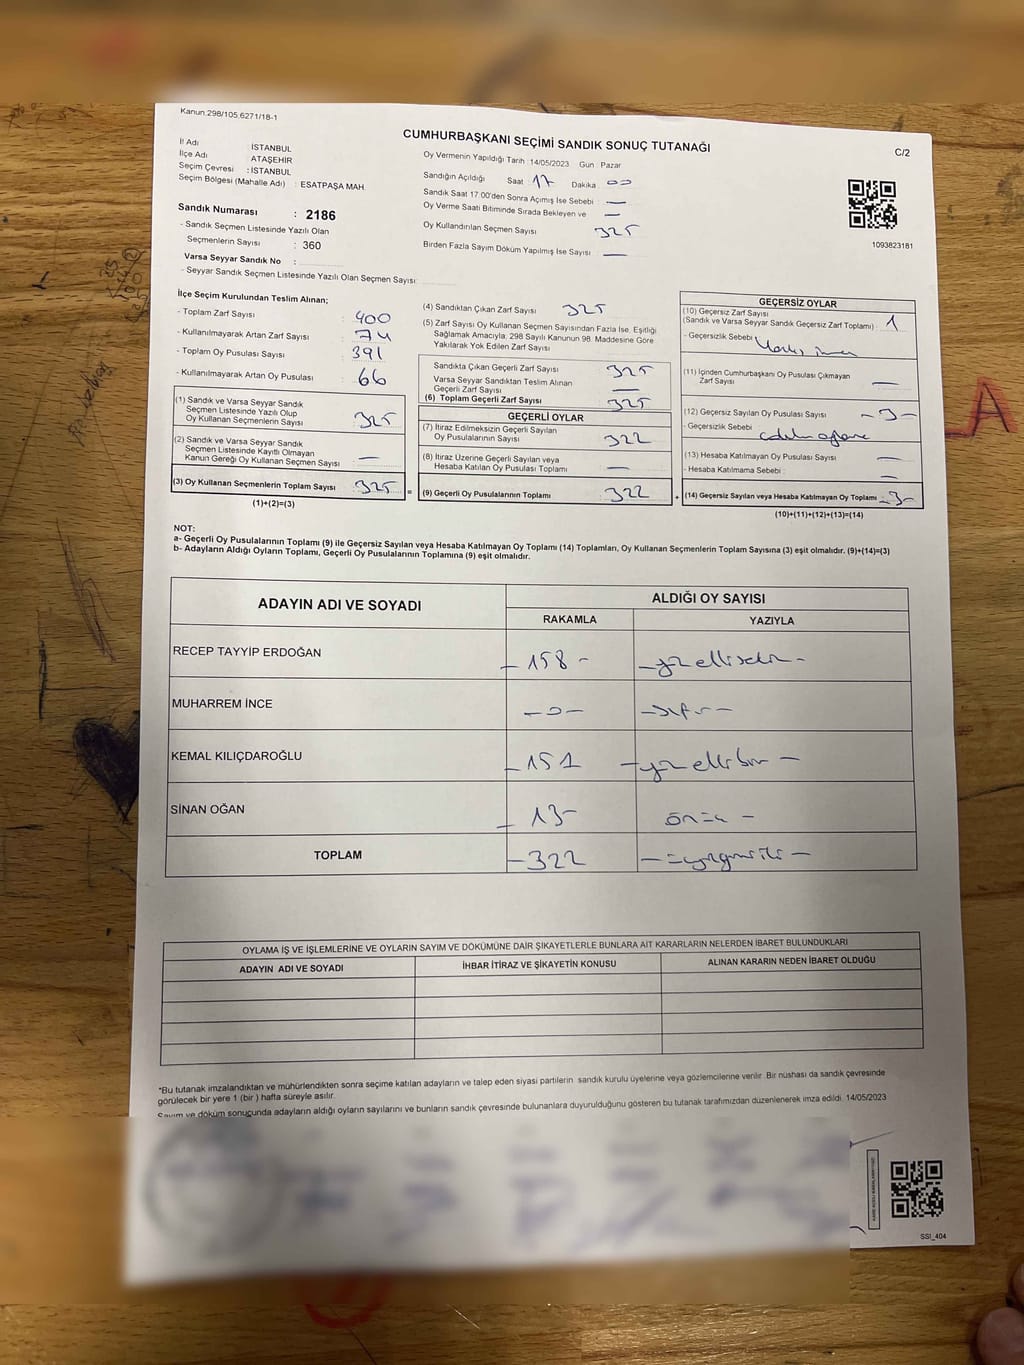 Kanun.298/105.6271/18-1
CUMHURBAŞKANI SEÇİMİ SANDIK SONUÇ TUTANAĞI
C/2
İl Adı : İSTANBUL
İlçe Adı : ATAŞEHİR
Seçim Çevresi : İSTANBUL
Seçim Bölgesi (Mahalle Adı) : ESATPAŞA MAH.
Sandık Numarası : 2186
- Sandık Seçmen Listesinde Yazılı Olan
Seçmenlerin Sayısı : 360
Varsa Seyyar Sandık No :
- Seyyar Sandık Seçmen Listesinde Yazılı Olan Seçmen Sayısı:
Oy Vermenin Yapıldığı Tarih : 14/05/2023 Gün : Pazar
Sandığın Açıldığı Saat : 17 Dakika : 00
Sandık Saat 17:00'den Sonra Açımış İse Sebebi : —
Oy Verme Saati Bitiminde Sırada Bekleyen ve —
Oy Kullandırılan Seçmen Sayısı 325
Birden Fazla Sayım Döküm Yapılmış İse Sayısı : —
1093823181
İlçe Seçim Kurulundan Teslim Alınan;
- Toplam Zarf Sayısı : 400
- Kullanılmayarak Artan Zarf Sayısı : 74
- Toplam Oy Pusulası Sayısı : 391
- Kullanılmayarak Artan Oy Pusulası : 66
(1) Sandık ve Varsa Seyyar Sandık
Seçmen Listesinde Yazılı Olup
Oy Kullanan Seçmenlerin Sayısı : 325
(2) Sandık ve Varsa Seyyar Sandık
Seçmen Listesinde Kayıtlı Olmayan
Kanun Gereği Oy Kullanan Seçmen Sayısı : —
(3) Oy Kullanan Seçmenlerin Toplam Sayısı : 325
(1)+(2)=(3)
=
(4) Sandıktan Çıkan Zarf Sayısı : 325
(5) Zarf Sayısı Oy Kullanan Seçmen Sayısından Fazla İse, Eşitliği
Sağlamak Amacıyla, 298 Sayılı Kanunun 98. Maddesine Göre
Yakılarak Yok Edilen Zarf Sayısı
Sandıkta Çıkan Geçerli Zarf Sayısı : 325
Varsa Seyyar Sandıktan Teslim Alınan
Geçerli Zarf Sayısı : —
(6) Toplam Geçerli Zarf Sayısı : 325
GEÇERLİ OYLAR
(7) İtiraz Edilmeksizin Geçerli Sayılan
Oy Pusulalarının Sayısı : 322
(8) İtiraz Üzerine Geçerli Sayılan veya
Hesaba Katılan Oy Pusulası Toplamı : —
(9) Geçerli Oy Pusulalarının Toplamı : 322
+
GEÇERSİZ OYLAR
(10) Geçersiz Zarf Sayısı
(Sandık ve Varsa Seyyar Sandık Geçersiz Zarf Toplamı) : 1
- Geçersizlik Sebebi :
(11) İçinden Cumhurbaşkanı Oy Pusulası Çıkmayan
Zarf Sayısı : —
(12) Geçersiz Sayılan Oy Pusulası Sayısı : - 3 -
- Geçersizlik Sebebi :
(13) Hesaba Katılmayan Oy Pusulası Sayısı : —
- Hesaba Katılmama Sebebi : —
(14) Geçersiz Sayılan veya Hesaba Katılmayan Oy Toplamı : - 3 -
(10)+(11)+(12)+(13)=(14)
NOT:
a- Geçerli Oy Pusulalarının Toplamı (9) ile Geçersiz Sayılan veya Hesaba Katılmayan Oy Toplamı (14) Toplamları, Oy Kullanan Seçmenlerin Toplam Sayısına (3) eşit olmalıdır. (9)+(14)=(3)
b- Adayların Aldığı Oyların Toplamı, Geçerli Oy Pusulalarının Toplamına (9) eşit olmalıdır.
ADAYIN ADI VE SOYADI ALDIĞI OY SAYISI
RAKAMLA YAZIYLA
RECEP TAYYİP ERDOĞAN - 158 - - yüzellisekiz -
MUHARREM İNCE - 0 - - sıfır -
KEMAL KILIÇDAROĞLU - 151 - yüzellibir -
SİNAN OĞAN - 13 - onüç -
TOPLAM - 322 - üçyüzyirmiiki -
OYLAMA İŞ VE İŞLEMLERİNE VE OYLARIN SAYIM VE DÖKÜMÜNE DAİR ŞİKAYETLERLE BUNLARA AİT KARARLARIN NELERDEN İBARET BULUNDUKLARI
ADAYIN ADI VE SOYADI İHBAR İTİRAZ VE ŞİKAYETİN KONUSU ALINAN KARARIN NEDEN İBARET OLDUĞU
*Bu tutanak imzalandıktan ve mühürlendikten sonra seçime katılan adayların ve talep eden siyasi partilerin sandık kurulu üyelerine veya gözlemcilerine verilir. Bir nüshası da sandık çevresinde
görülecek bir yere 1 (bir) hafta süreyle asılır.
Sayım ve döküm sonucunda adayların aldığı oyların sayılarını ve bunların sandık çevresinde bulunanlara duyurulduğunu gösteren bu tutanak tarafımızdan düzenlenerek imza edildi. 14/05/2023
SSI_404
A